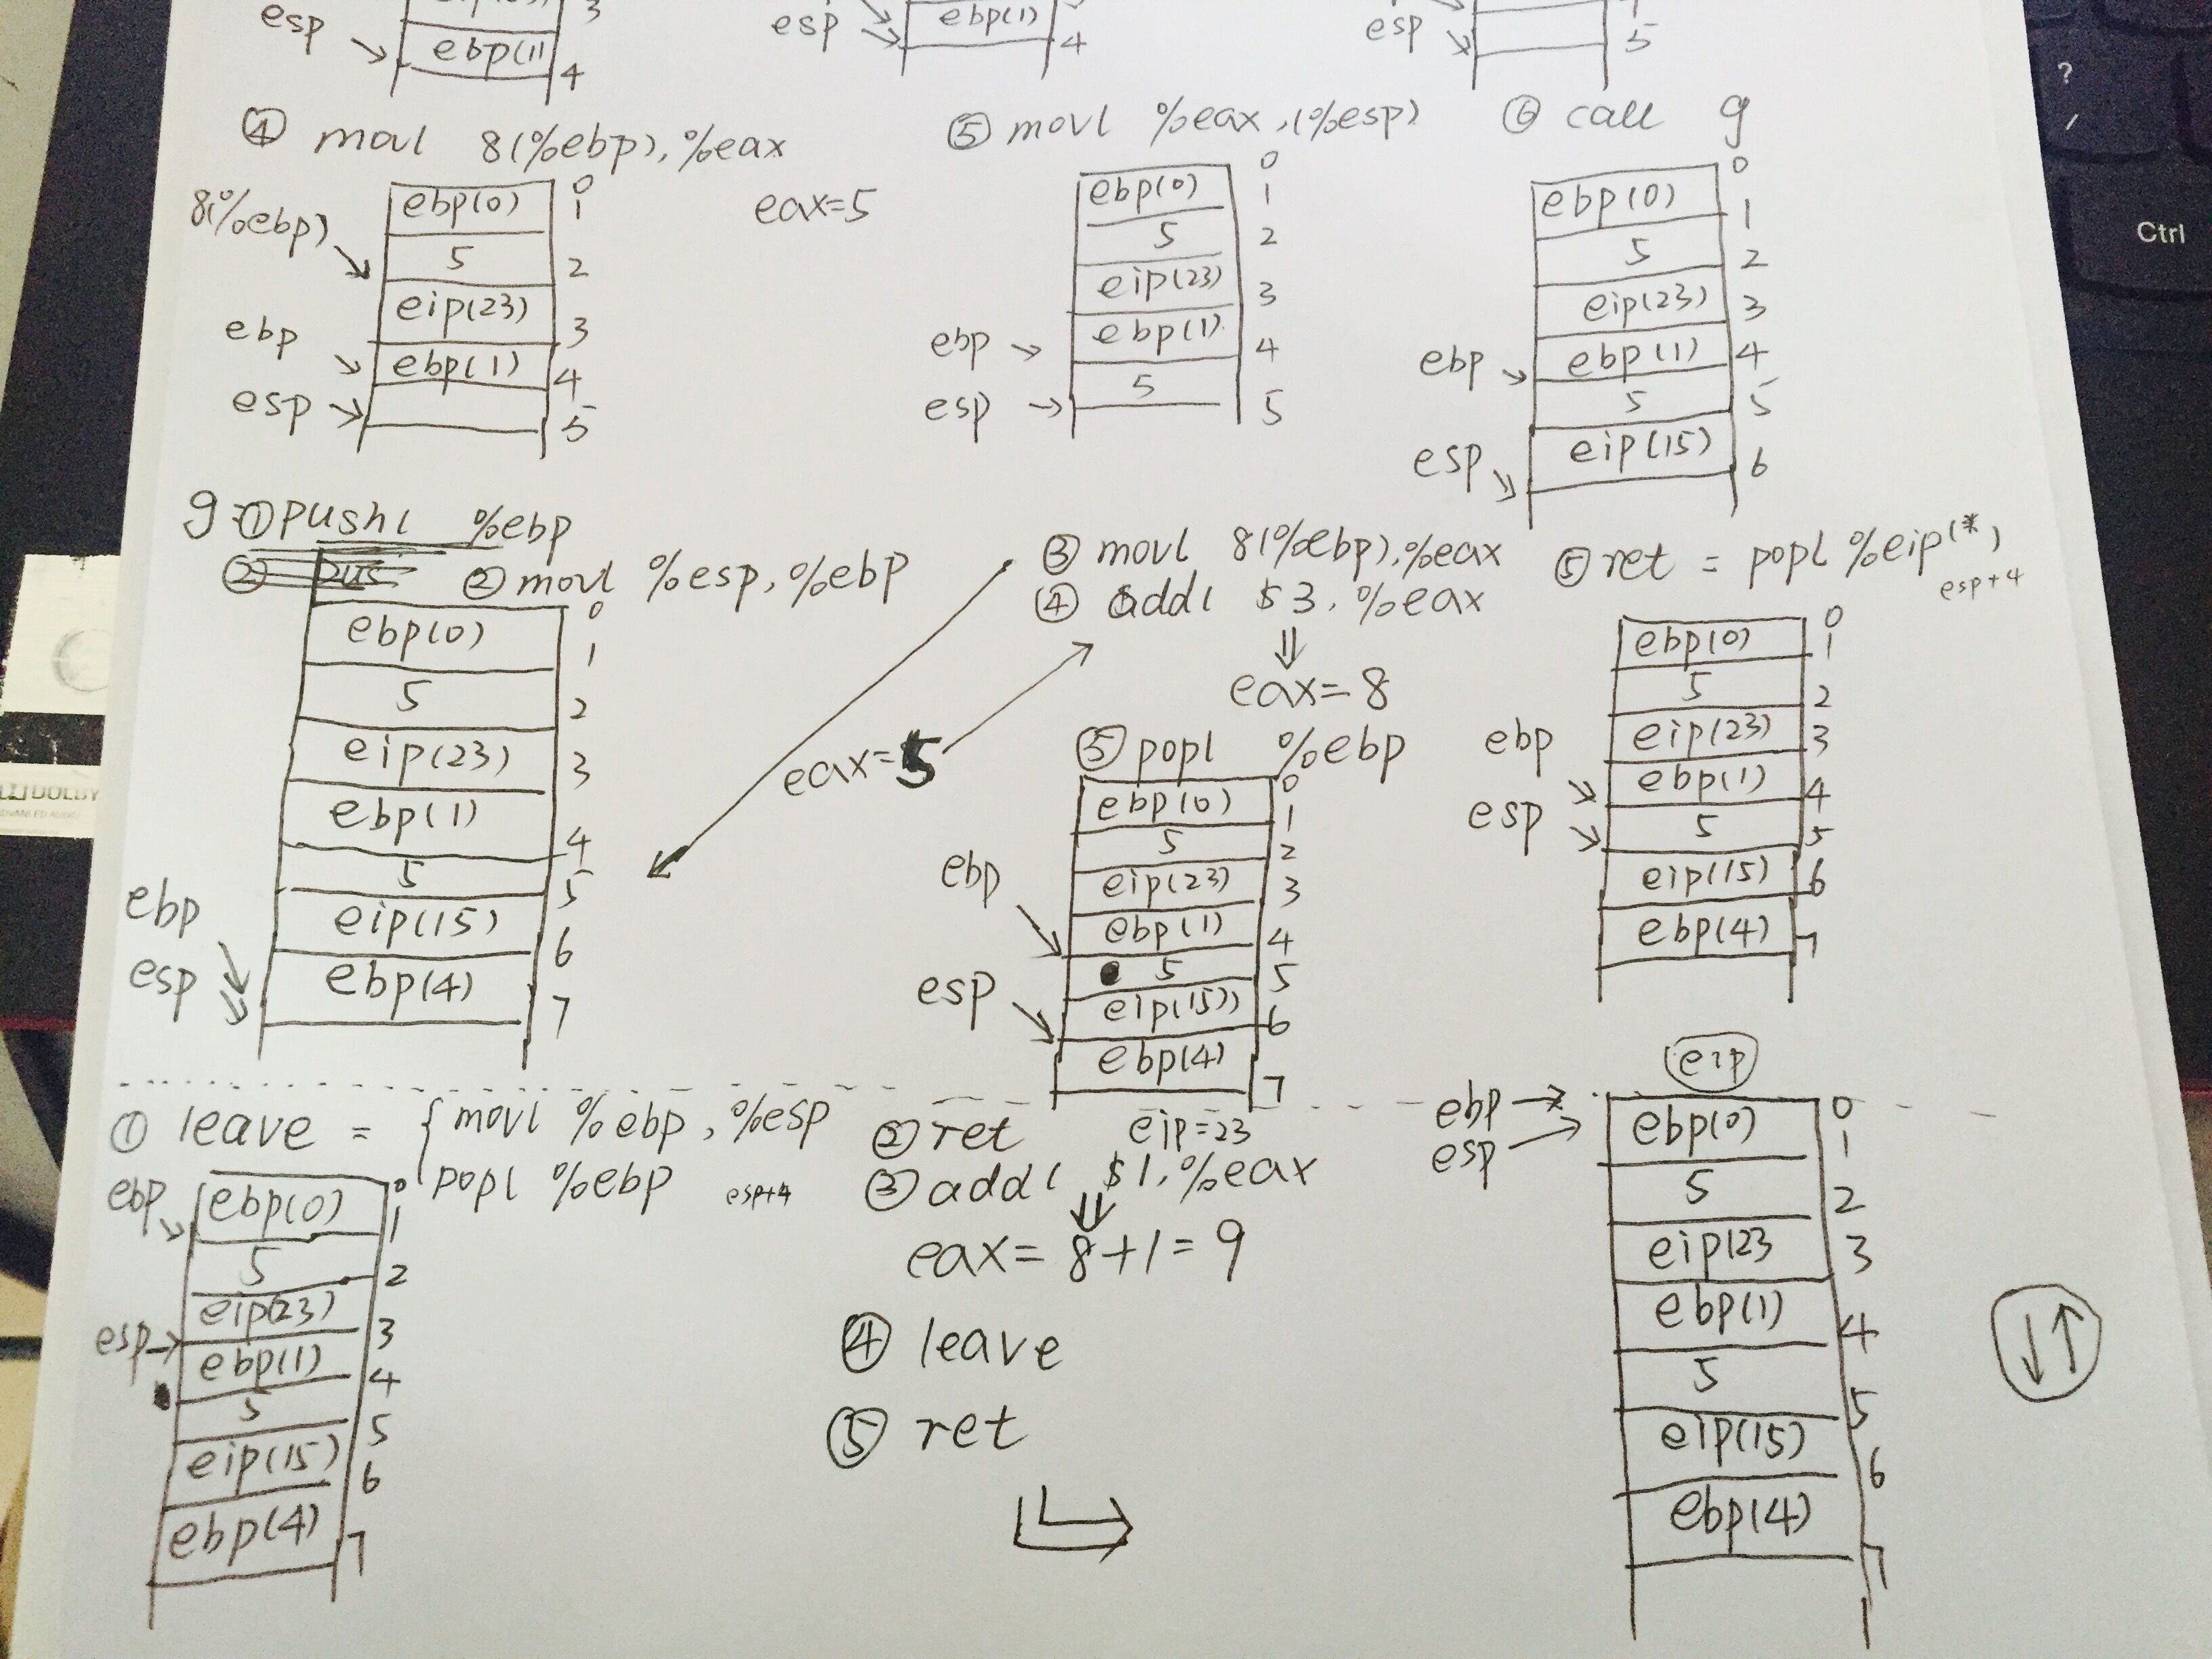 esp
ebp(1)
3
4
esp
ebp(1)
4
esp
5
④ movl 8(%ebp),%eax
⑤ movl %eax,(%esp)
⑥ call g
8(%ebp)
ebp
esp
ebp(0)
5
eip(23)
ebp(1)
0
1
2
3
4
5
eax=5
ebp
esp
ebp(0)
5
eip(23)
ebp(1)
5
0
1
2
3
4
5
ebp
esp
ebp(0)
5
eip(23)
ebp(1)
5
eip(15)
0
1
2
3
4
5
6
g ① pushl %ebp
② pus ② movl %esp,%ebp
③ movl 8(%ebp),%eax
④ addl $3,%eax
⇓
eax=8
⑤ ret = popl %eip(*)
esp+4
ebp
esp
ebp(0)
5
eip(23)
ebp(1)
5
eip(15)
ebp(4)
0
1
2
3
4
5
6
7
eax=5
⑤ popl %ebp
ebp
esp
ebp(0)
5
eip(23)
ebp(1)
5
eip(15))
ebp(4)
0
1
2
3
4
5
6
7
ebp
esp
ebp(0)
5
eip(23)
ebp(1)
5
eip(15)
ebp(4)
0
1
2
3
4
5
6
7
① leave = { movl %ebp,%esp
popl %ebp esp+4
ebp
esp
ebp(0)
5
eip(23)
ebp(1)
5
eip(15)
ebp(4)
0
1
2
3
4
5
6
7
② ret eip=23
③ addl $1,%eax
⇓
eax= 8+1=9
④ leave
⑤ ret
eip
ebp
esp
ebp(0)
5
eip(23
ebp(1)
5
eip(15)
ebp(4)
0
1
2
3
4
5
6
7
?
/
Ctrl
DOLBY